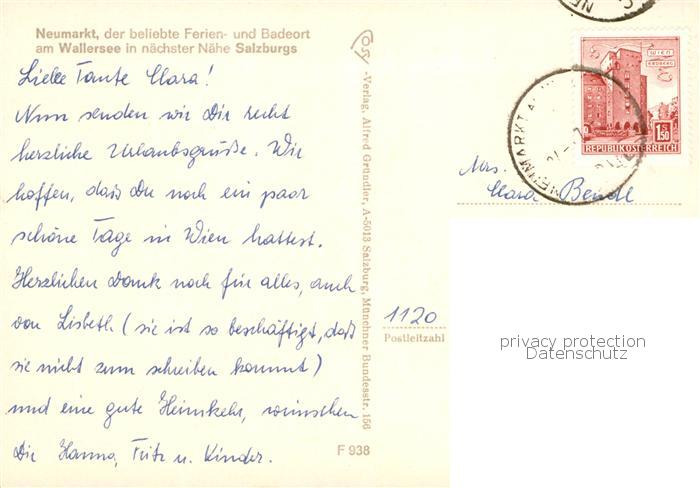 Neumarkt, der beliebte Ferien- und Badeort
am Wallersee in nächster Nähe Salzburgs
Liebe Tante Clara!
Nun senden wir Dir recht
herzliche Urlaubsgrüße. Wir
hoffen, daß Du noch ein paar
schöne Tage in Wien hattest.
Herzlichen Dank noch für alles, auch
von Lisbeth (sie ist so beschäftigt, daß
sie nicht zum schreiben kommt)
und eine gute Heimkehr, wünschen
Dir Hanna, Fritz u. Kinder.
-Verlag, Alfred Gründler, A-5013 Salzburg, Münchner Bundesstr. 156
F 938
WIEN
ERDBERG
1.50
REPUBLIK ÖSTERREICH
NEUMARKT AM
Mrs.
Clara Bendl
1120
Postleitzahl
privacy protection
Datenschutz